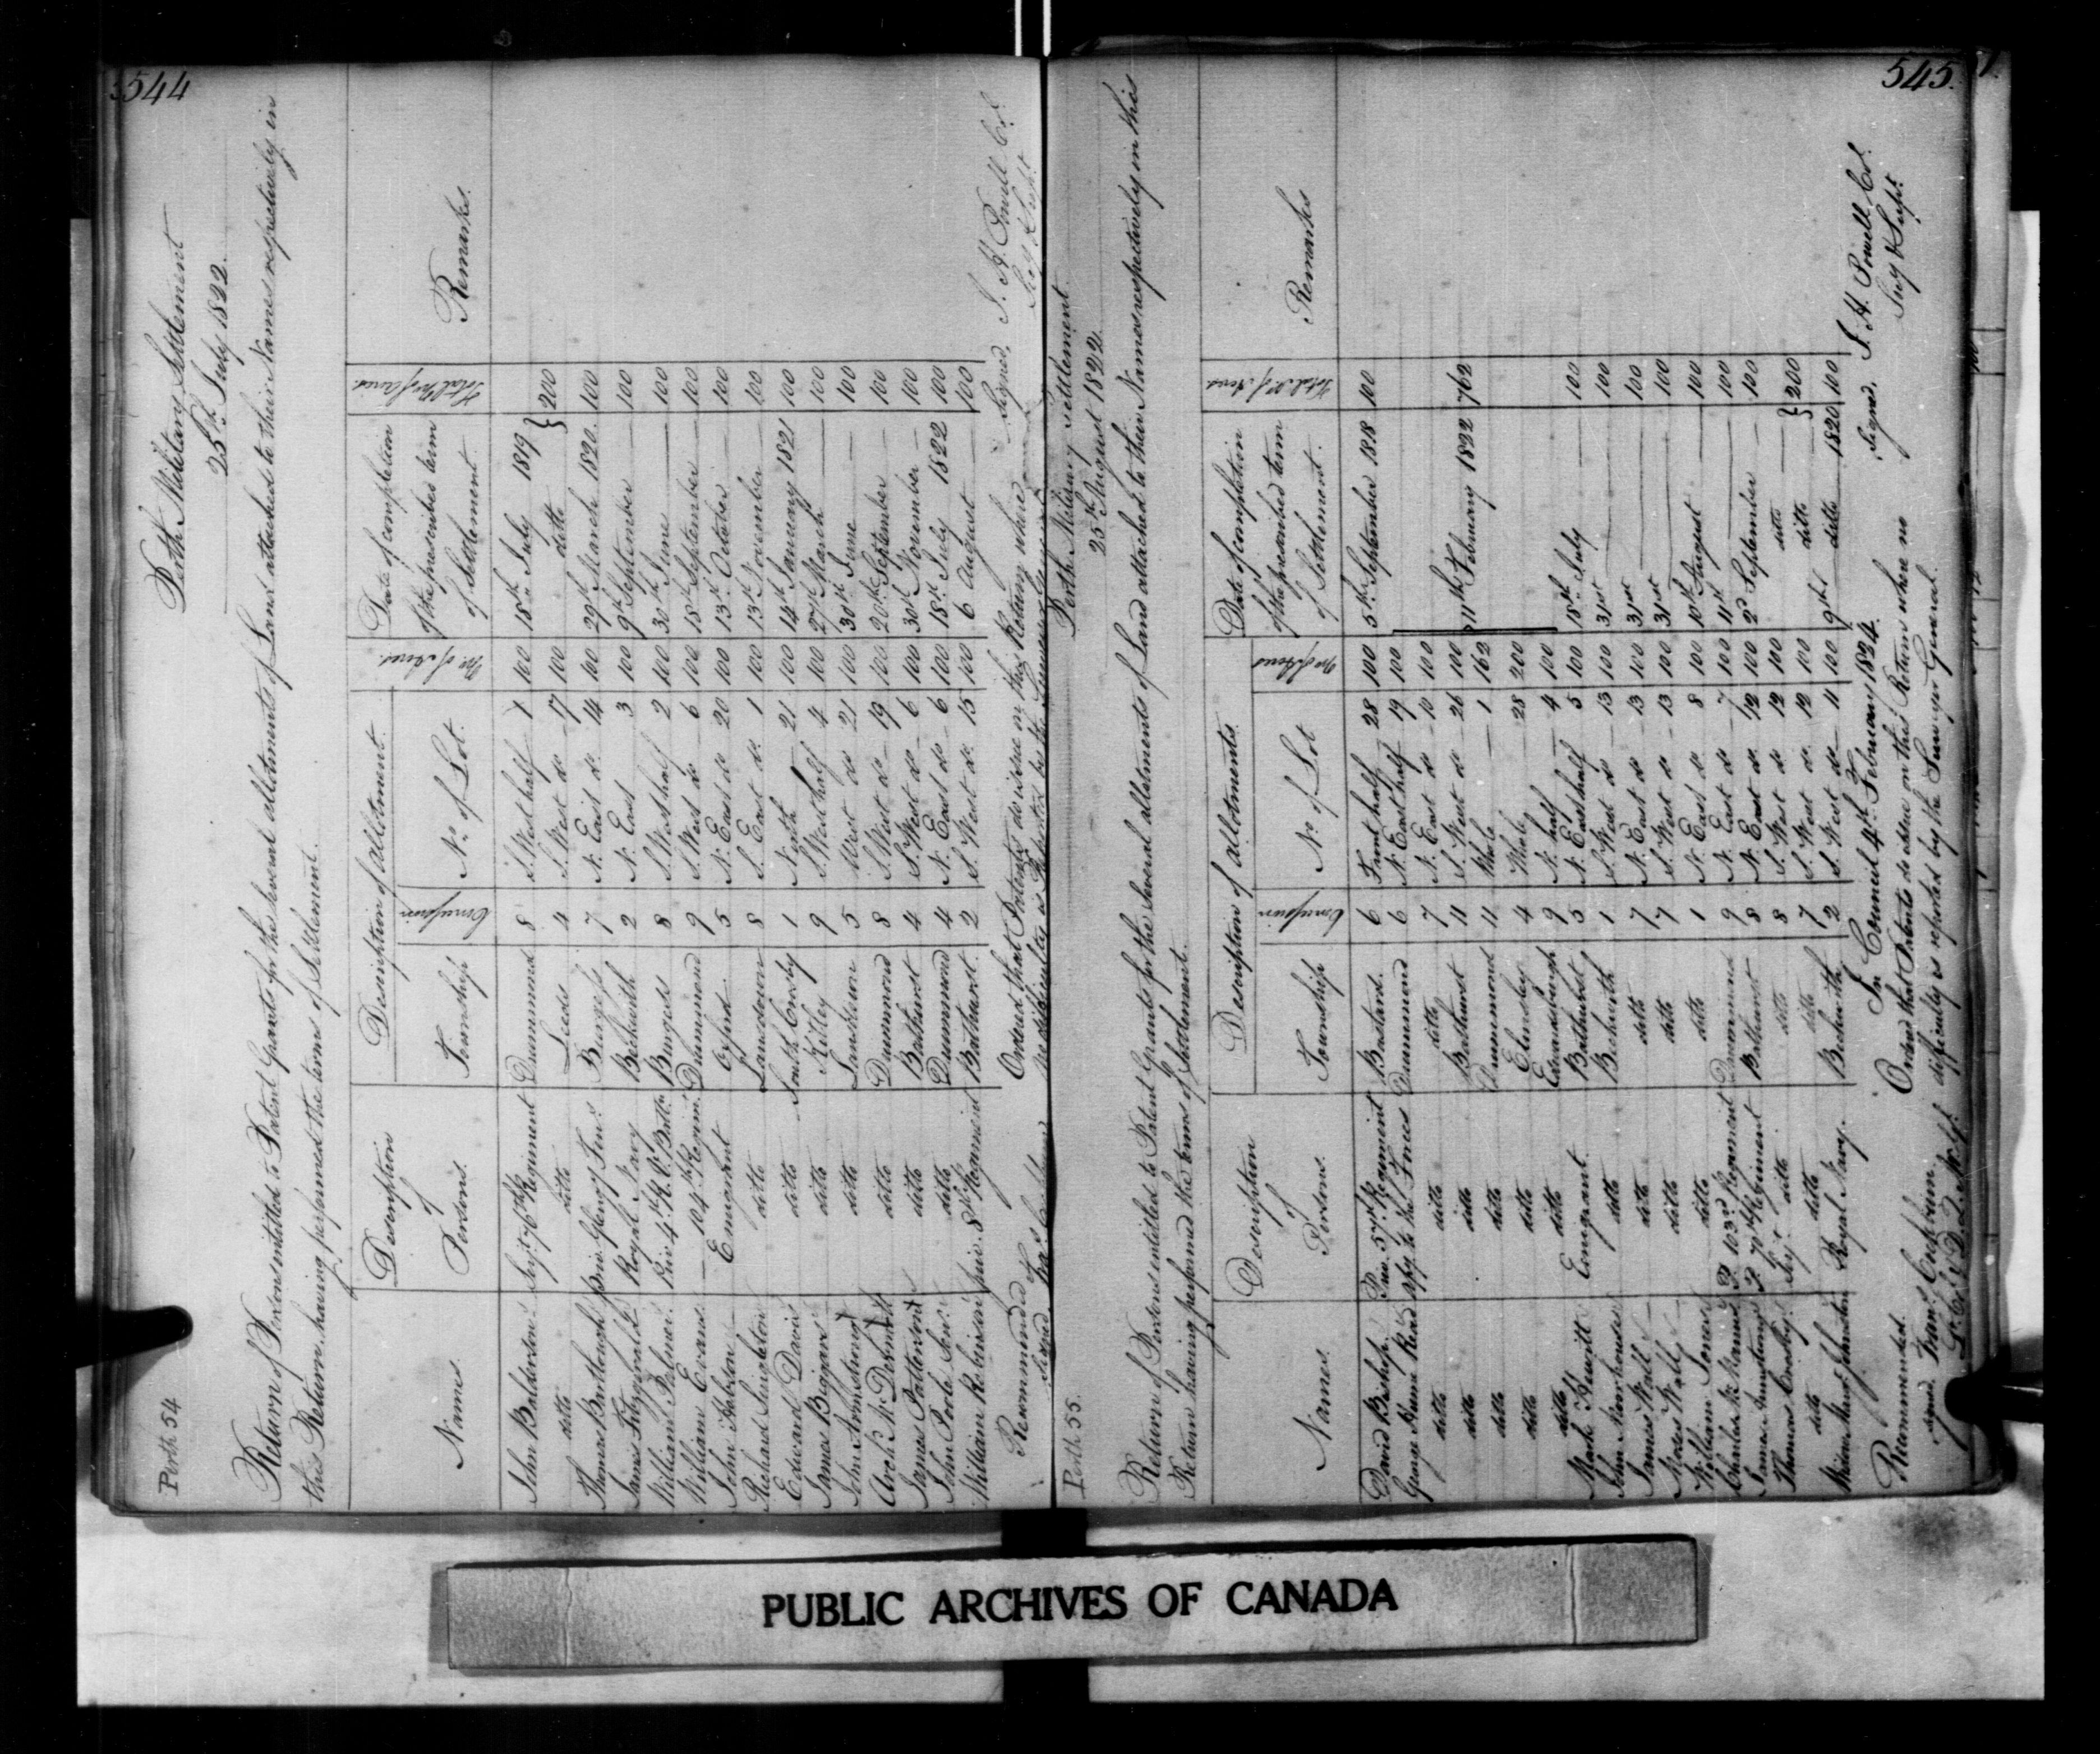 544
Perth 54
Perth Military Settlement
25th July 1822.
Return of Persons entitled to Patent Grants for the several allotments of Land attached to their Names respectively in
this Return, having performed the terms of Settlement.
Names. Description of Persons. Description of allotment. Date of completion of the prescribed term of Settlement. Total No of acres Remarks.
Township Concession No. of Lot. No. of Acres
John Balderson Serjt. 76th Regiment Drummond 8 S. West half 1 100 18th July 1819
ditto ditto Leeds 4 S. West do 17 100 ditto } 200
Thomas Bartleough Priv. Glengy. Fens. Burgess 7 N. East do 14 100 29th March 1820. 100
James Fitzgerald Royal Navy Beckwith 2 N. East 3 100 9th September 100
William Palmer Burgess 8 S. West half 2 100 30th June 100
William Evans 104th Regimt. Drummond 9 S. West do 6 100 18th September 100
John Emigrant Oxford 5 N. East do 20 100 13th October 100
Richard Singleton ditto Lansdown 8 S. East do 1 100 13th November 100
Edward Davis ditto South Crosby 1 North 21 100 14th January 1821 100
James Biggars ditto Kitley 9 S. West half 4 100 27th March 100
John Armstrong ditto Lansdown 5 West do 21 100 30th June 100
Arch. McDermitt ditto Drummond 8 S. West do 19 100 20th September 100
James Patterson ditto Bathurst 4 S. West do 6 100 30th November 100
John Poole Senr. ditto Drummond 4 N. East do 6 100 18th July 1822 100
William Robinson Priv. 8th Regiment Bathurst 2 S. West do 15 100 6 August 100
Signed, J. H. Powell Col.
Secy & Supt.
Recommended
Ordered that Patents do issue on this Return where
no difficulty is Reported by the Surveyor General
Signed
545.
Perth 55.
Perth Military Settlement
25th August 1822.
Return of Persons entitled to Patent Grants for the several allotments of Land attached to their Names respectively in this
Return having performed the terms of Settlement.
Names. Description of Persons. Description of allotments. Date of completion of the prescribed term of Settlement. Total No of Acres Remarks
Township Concession No. of Lot No. of Acres
David Bishop Priv. 57th Regiment Bastard. 6 Front half 28 100 5th September 1818 100
George Hume Read to the Forces Drummond 6 N. East half 19 100
ditto ditto ditto 7 N. East do 10 100
ditto ditto Bathurst 11 S. West do 26 100 11th February 1822 762
ditto ditto Drummond 11 Whole 1 162
ditto ditto Elmsley 4 Whole 28 200
ditto ditto 9 N. half 4 100
Mark Hewitt Emigrant Bathurst 5 N. East half 5 100 18th July 100
John Moorhouse ditto Beckwith 1 S. West do 13 100 31st 100
James Wall ditto ditto 7 N. East do 13 100 31st 100
Moses Wall ditto ditto 7 S. West do 13 100 31st 100
William Jones ditto ditto 1 N. East do 8 100 10th August 100
Charles McManus P. 103d Regiment Drummond 9 N. East do 7 100 11th 100
James Armstrong P. 70th Regiment Bathurst 8 N. East do 12 100 2d September 100
Thomas Cosby Serjt. ditto ditto 8 S. West do 12 100 ditto
ditto ditto ditto 7 S. West do 12 100 ditto } 200
Johnston Royal Navy. Beckwith 2 S. West do 11 100 9th ditto 1820 100
Signed, J. H. Powell, Col.
Secy & Supt.
Recommended.
In Council 4th February 1824.
Ordered that Patents do issue on this Return where no
difficulty is reported by the Surveyor General.
Signed, Cockburn
Lt. Col.
PUBLIC ARCHIVES OF CANADA